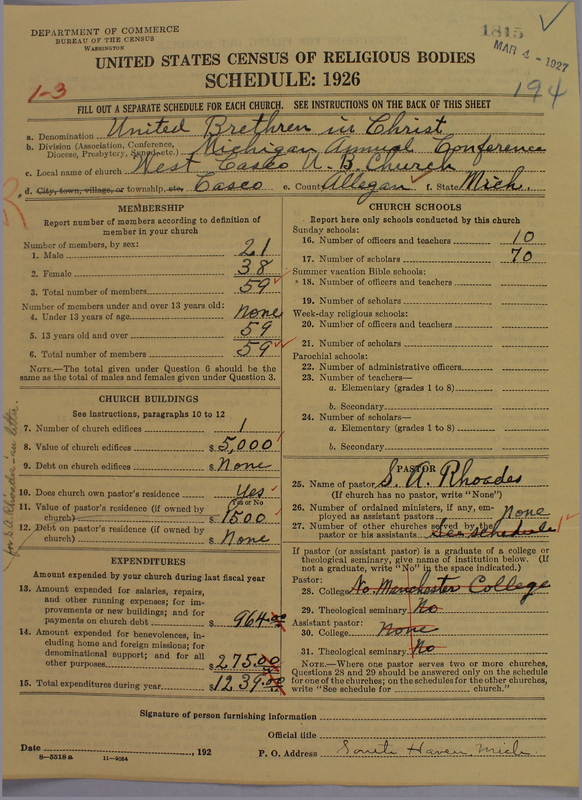 DEPARTMENT OF COMMERCE
BUREAU OF THE CENSUS
WASHINGTON
1815
MAR 4 - 1927
UNITED STATES CENSUS OF RELIGIOUS BODIES
SCHEDULE: 1926
1-3
194
FILL OUT A SEPARATE SCHEDULE FOR EACH CHURCH. SEE INSTRUCTIONS ON THE BACK OF THIS SHEET
a. Denomination United Brethren in Christ
b. Division (Association, Conference, Diocese, Presbytery, Synod, etc.) Michigan Annual Conference
c. Local name of church West Casco U.B. Church
d. City, town, village, or township, etc. Casco e. County Allegan f. State Mich.
R
MEMBERSHIP
Report number of members according to definition of member in your church
Number of members, by sex:
1. Male 21
2. Female 38
3. Total number of members 59
Number of members under and over 13 years old:
4. Under 13 years of age None
5. 13 years old and over 59
6. Total number of members 59
NOTE.—The total given under Question 6 should be the same as the total of males and females given under Question 3.
CHURCH BUILDINGS
See instructions, paragraphs 10 to 12
7. Number of church edifices 1
8. Value of church edifices $5,000
9. Debt on church edifices $None
10. Does church own pastor's residence Yes
Yes or No
11. Value of pastor's residence (if owned by church) $1500
12. Debt on pastor's residence (if owned by church) $None
for S.A. Rhoades' an letter.
EXPENDITURES
Amount expended by your church during last fiscal year
13. Amount expended for salaries, repairs, and other running expenses; for improvements or new buildings; and for payments on church debt $964.00
14. Amount expended for benevolences, including home and foreign missions; for denominational support; and for all other purposes $275.00
15. Total expenditures during year $1239.00
CHURCH SCHOOLS
Report here only schools conducted by this church
Sunday schools:
16. Number of officers and teachers 10
17. Number of scholars 70
Summer vacation Bible schools:
18. Number of officers and teachers
19. Number of scholars
Week-day religious schools:
20. Number of officers and teachers
21. Number of scholars
Parochial schools:
22. Number of administrative officers
23. Number of teachers—
a. Elementary (grades 1 to 8)
b. Secondary
24. Number of scholars—
a. Elementary (grades 1 to 8)
b. Secondary
PASTOR
25. Name of pastor S. A. Rhoades
(If church has no pastor, write "None")
26. Number of ordained ministers, if any, employed as assistant pastors None
27. Number of other churches served by the pastor or his assistants See schedule 1
If pastor (or assistant pastor) is a graduate of a college or theological seminary, give name of institution below. (If not a graduate, write "No" in the space indicated.)
Pastor:
28. College No. Manchester College
29. Theological seminary No
Assistant pastor:
30. College None
31. Theological seminary No
NOTE.—Where one pastor serves two or more churches, Questions 28 and 29 should be answered only on the schedule for one of the churches; on the schedules for the other churches, write "See schedule for church."
Signature of person furnishing information
Official title
Date , 192
P. O. Address South Haven, Mich.
8—5518a 11—9054